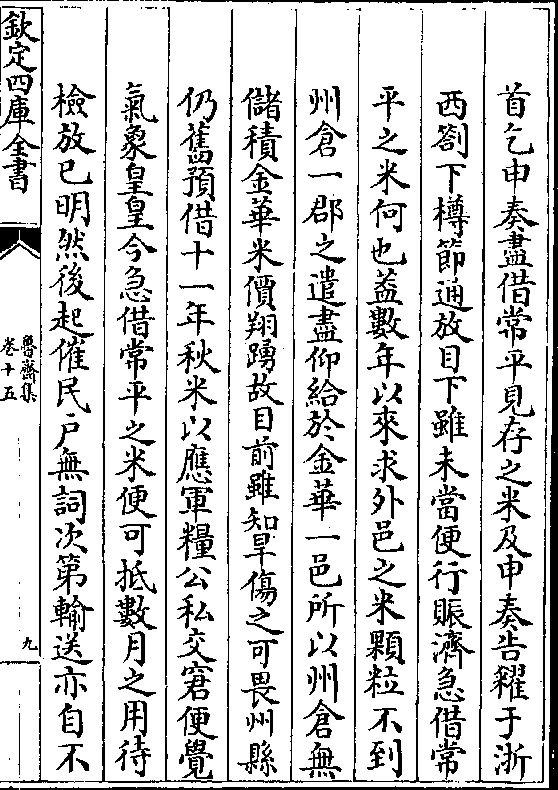 首乞申奏盡借常平見存之米及申奏告糴于浙
西劄下樽節通放目下雖未當便行賑濟急借常
平之米何也葢數年以來求外邑之米顆粒不到
州倉一郡之遣盡仰給於金華一邑所以州倉無
儲積金華米價翔踴故目前雖知旱傷之可畏州縣
仍舊預借十一年秋米以應軍糧公私交窘便覺
氣象皇皇今急借常平之米便可抵數月之用待
檢放已明然後起催民戶無詞次第輸送亦自不
欽定四庫全書
魯齋集
卷十五
九